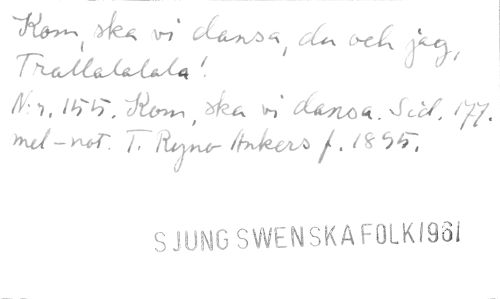 Kom, ska vi dansa, du och jag,
Trallalalala!
N:r. 155. Kom, ska vi dansa. Sid. 177.
mel-not. T. Ryno Ankers f. 1895.
SJUNG SWENSKA FOLK 1961